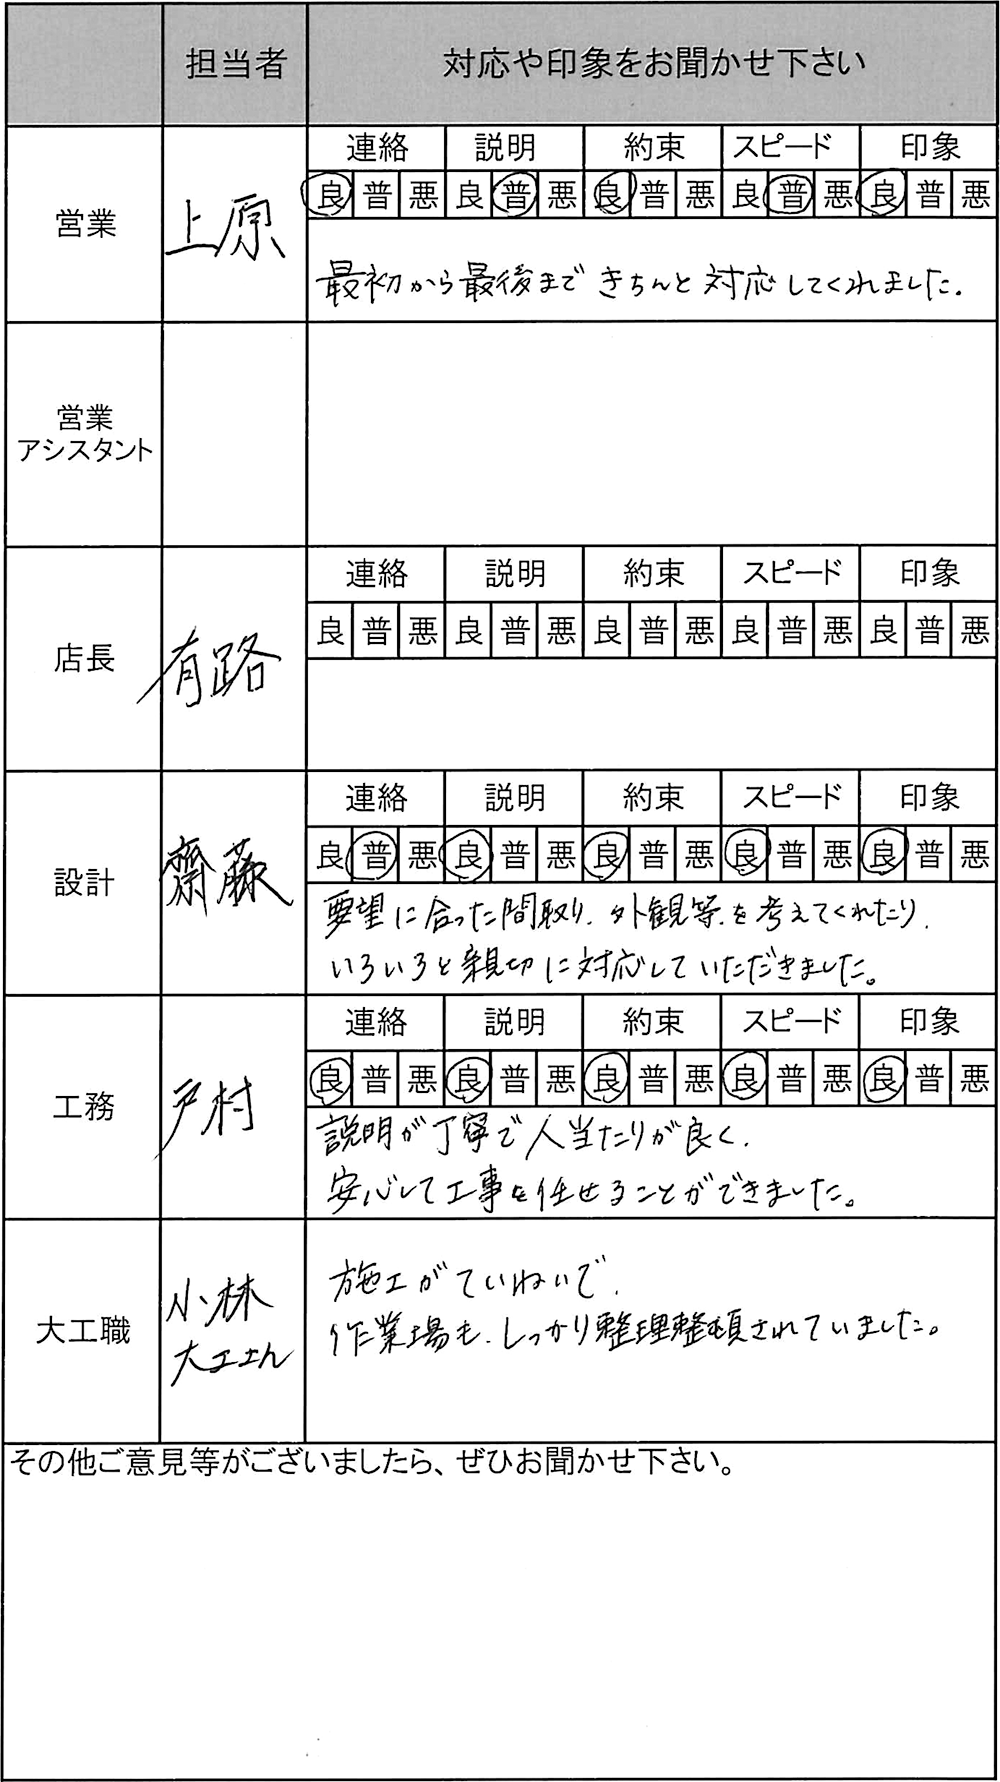 担当者 対応や印象をお聞かせ下さい
連絡 説明 約束 スピード 印象
良 普 悪 良 普 悪 良 普 悪 良 普 悪 良 普 悪
営業 上原
最初から最後まできちんと対応してくれました.
営業
アシスタント
連絡 説明 約束 スピード 印象
良 普 悪 良 普 悪 良 普 悪 良 普 悪 良 普 悪
店長 有路
連絡 説明 約束 スピード 印象
良 普 悪 良 普 悪 良 普 悪 良 普 悪 良 普 悪
設計 齋藤
要望に合った間取り、外観等を考えてくれたり、
いろいろと親切に対応していただきました。
連絡 説明 約束 スピード 印象
良 普 悪 良 普 悪 良 普 悪 良 普 悪 良 普 悪
工務 戸村
説明が丁寧で人当たりが良く、
安心して工事を任せることができました。
大工職 小林
大工さん
施工がていねいで、
作業場も、しっかり整理整頓されていました。
その他ご意見等がございましたら、ぜひお聞かせ下さい。